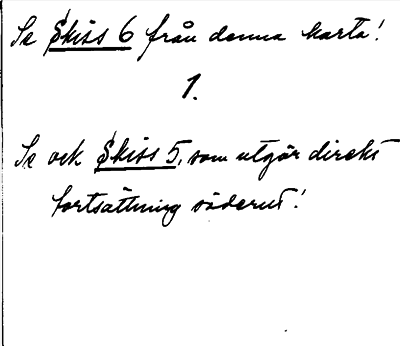 Se Skiss 6 från denna karta!
1.
Se ock Skiss 5, som utgör direkt
fortsättning söderut!